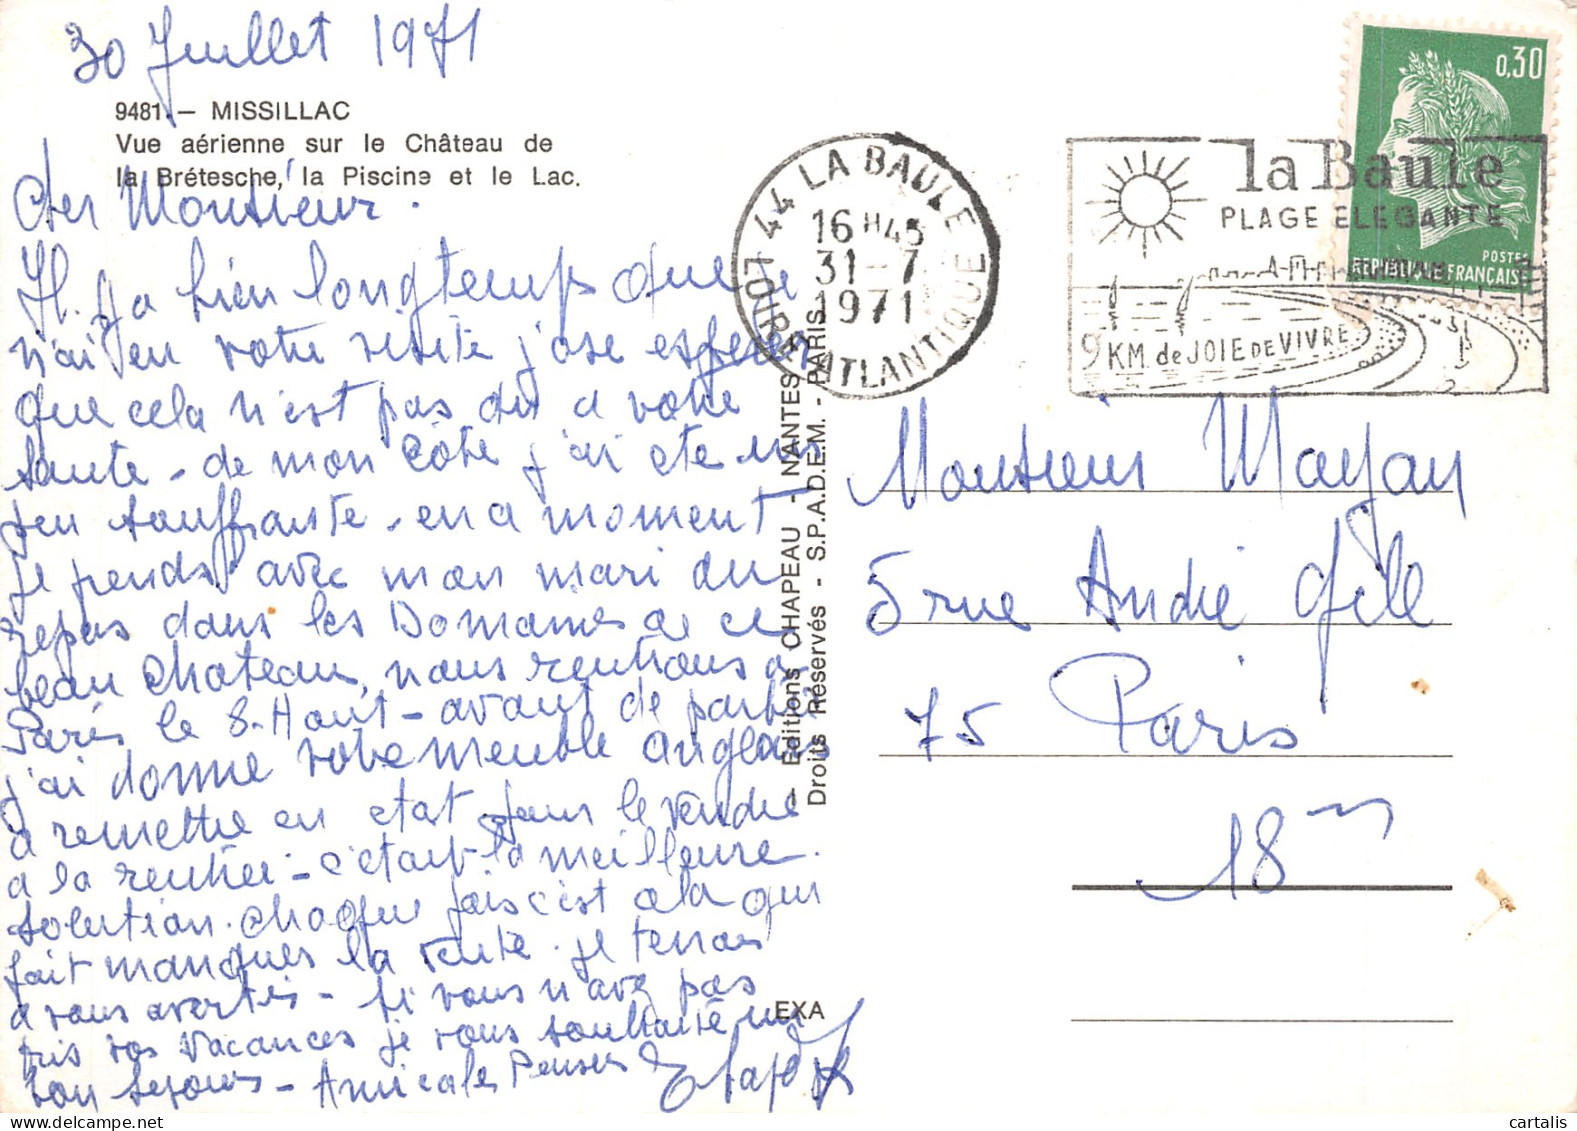 30 Juillet 1971
9481. — MISSILLAC
Vue aérienne sur le Château de
la Brétesche, la Piscine et le Lac.
cher Monsieur.
Il y a bien longtemps que je
n'ai eu votre visite j'ose esperer
que cela n'est pas du a votre
sante - de mon côte j'ai ete un
peu souffrante - en ce moment
je prends avec mon mari du
repos dans les Domaines de ce
beau chateau, nous rentrons a
Paris le 8. Aout - avant de partir
j'ai donne votre meuble anglais
a remettre en etat pour le vendre
a la rentrée - c'etait la meilleure
solution. chaque fois c'est cela qui
fait manquer la vente. je tenais
a vous avertir - si vous n'avez pas
pris vos vacances je vous souhaite un
bon sejour - Amicales Pensées
44 LA BAULE
16 H45
31 - 7
1971
LOIRE ATLANTIQUE
la Baule
PLAGE ELEGANTE
9 KM. de JOIE DE VIVRE
0,30
POSTES
REPUBLIQUE FRANÇAISE
Editions CHAPEAU - NANTES
Droits Réservés - S.P.A.D.E.M. - PARIS
Monsieur Mayan
5 rue André Gill
75 Paris
18
EXA
cartalis